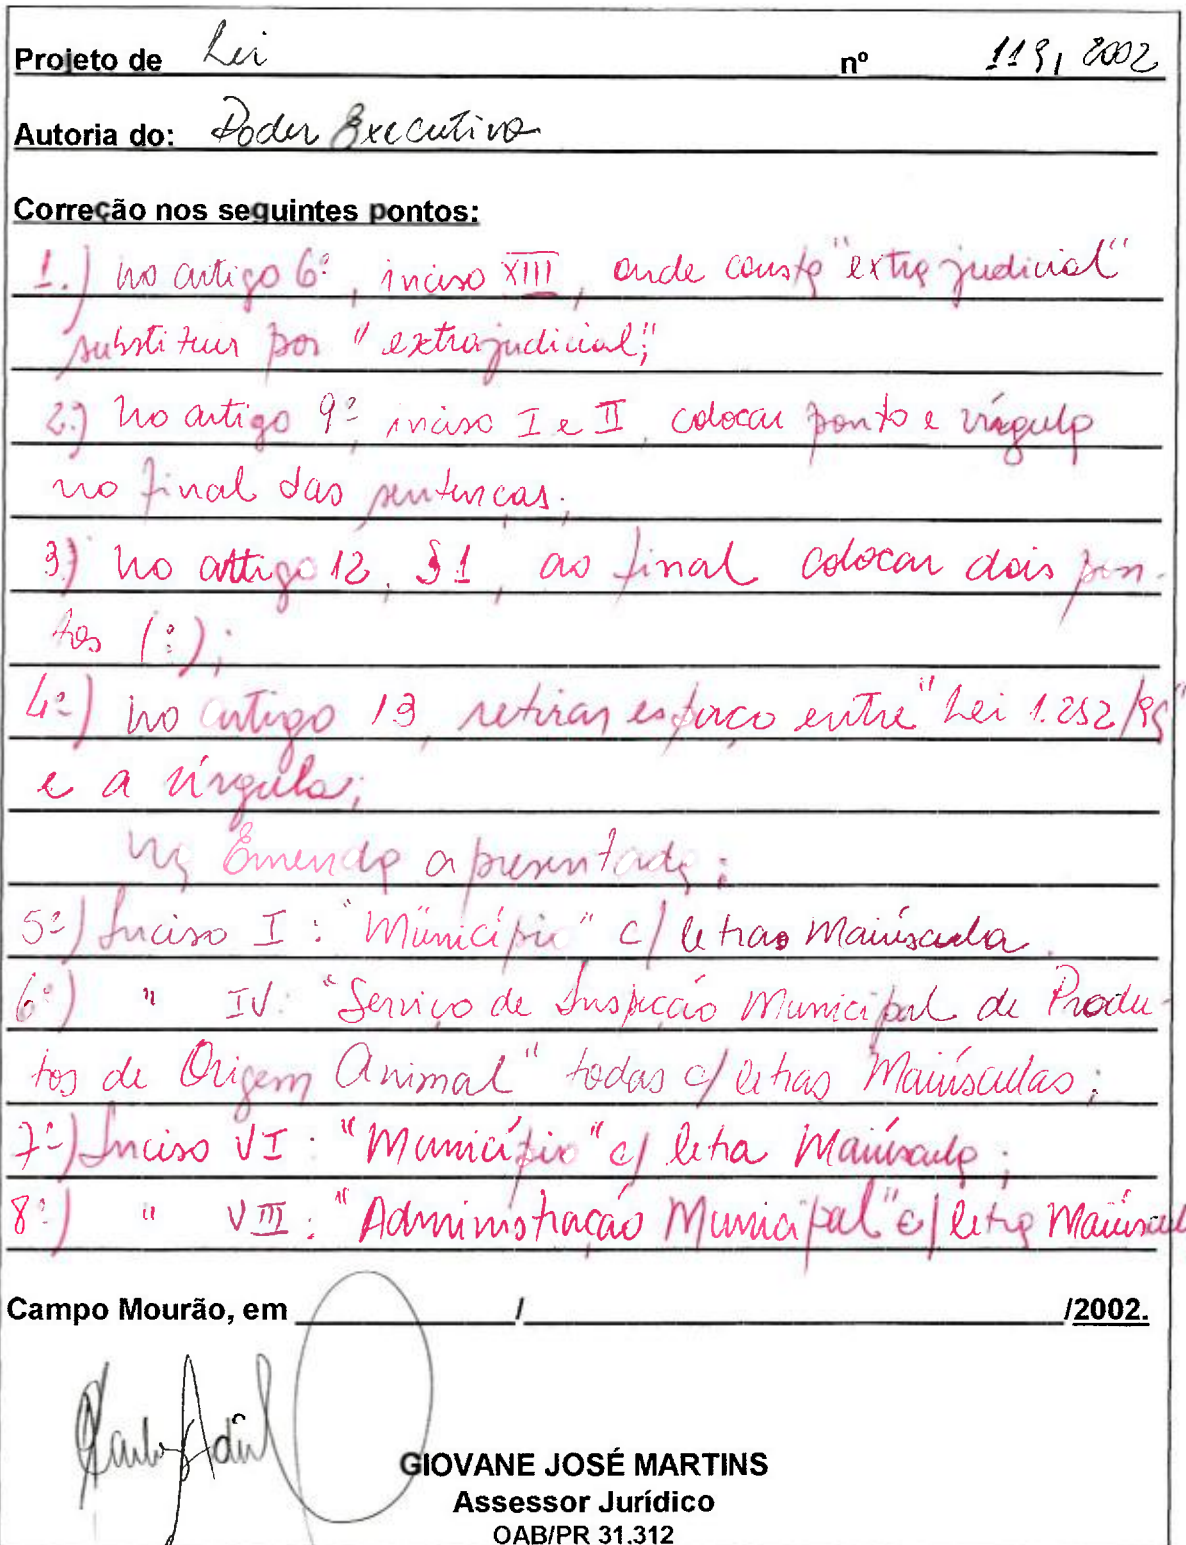 Projeto de Lei nº 119, 2002
Autoria do: Poder Executivo
Correção nos seguintes pontos:
1.) no artigo 6º, inciso XIII, onde consta "extra judicial"
substituir por "extrajudicial;"
2.) no artigo 9º inciso I e II, colocar ponto e vírgula
no final das sentenças;
3.) no artigo 12, § 1, ao final colocar dois pon-
tos (:);
4º) no artigo 13, retirar espaço entre "Lei 1.252/95"
e a vírgula;
na Emenda apresentada:
5º) Inciso I: "Município" c/ letras Maiúscula.
6º) " IV: "Serviço de Inspeção Municipal de Produ-
tos de Origem Animal" todas c/ letras Maiúsculas;
7º) Inciso VI: "Município" c/ letra Maiúscula;
8º) " VIII: "Administração Municipal" c/ letra Maiúscul
Campo Mourão, em ____/____/2002.
GIOVANE JOSÉ MARTINS
Assessor Jurídico
OAB/PR 31.312